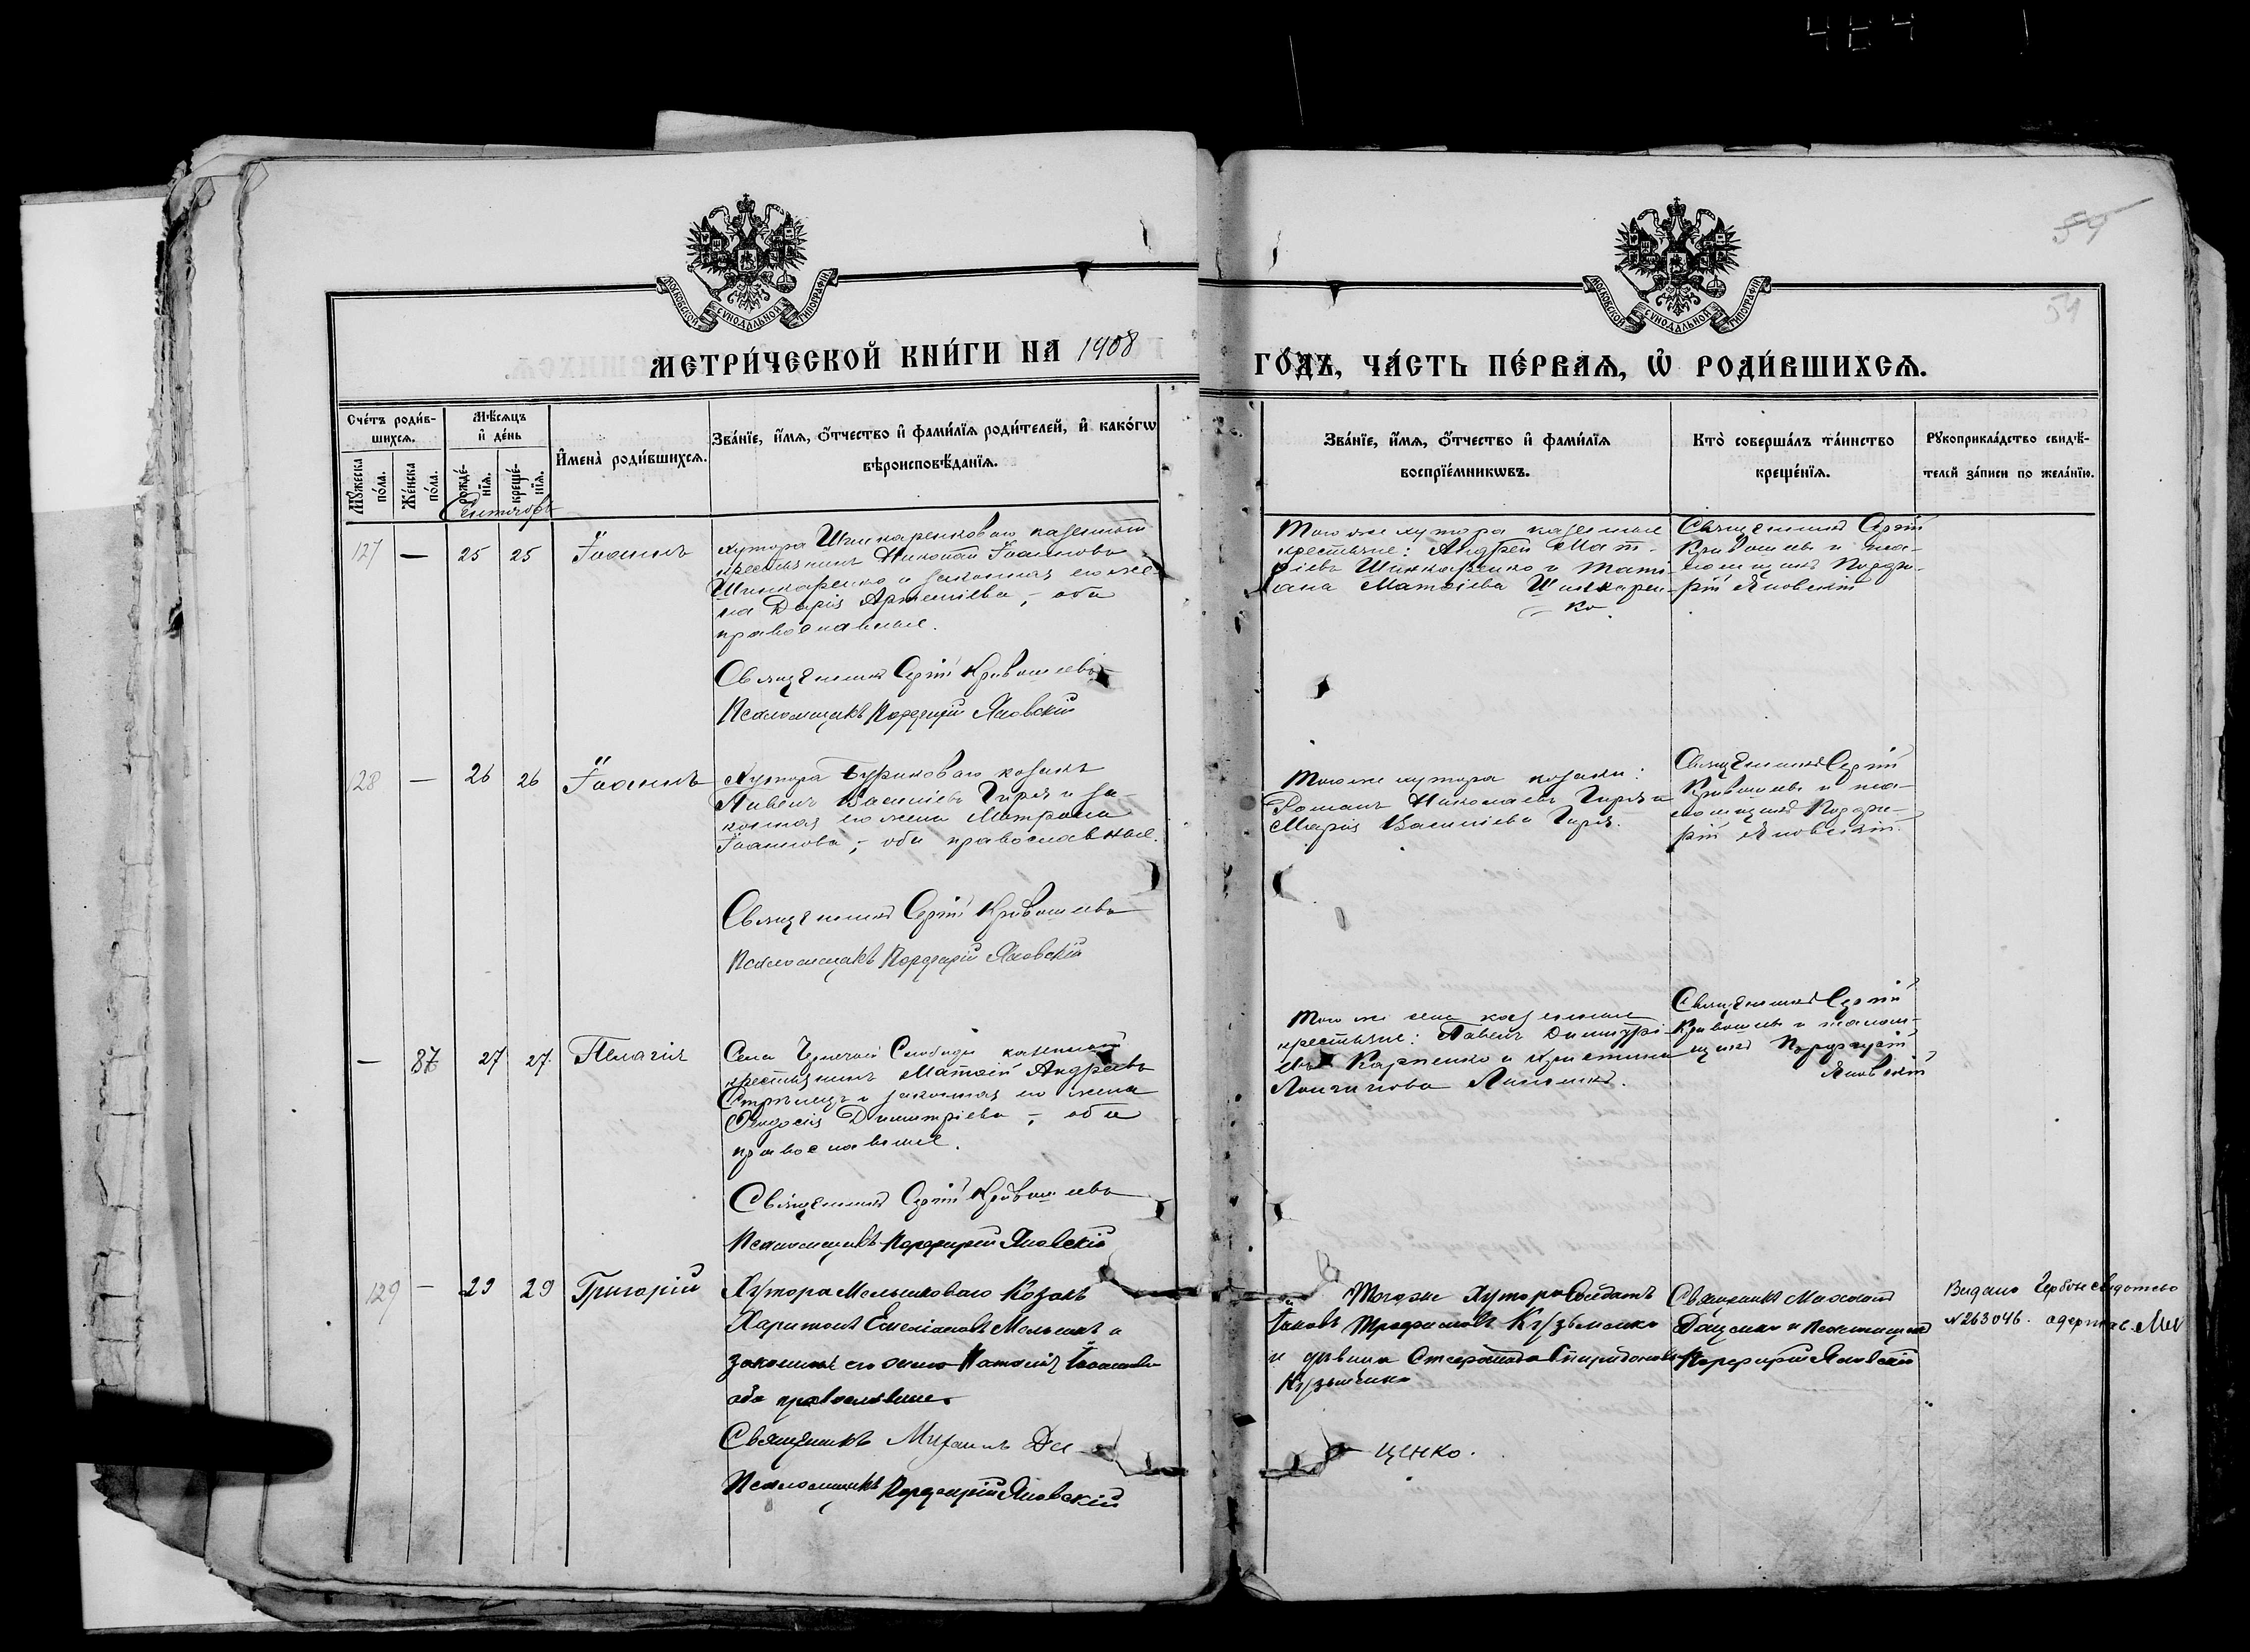 МОСКОВСКОЙ СѴНОДАЛЬНОЙ ТИПОГРАФІИ
МОСКОВСКОЙ СѴНОДАЛЬНОЙ ТИПОГРАФІИ
МЕТРИ́ЧЕСКОЙ КНИ́ГИ НА 1908
ГО́ДЪ, ЧА́СТЬ ПЕ́РВАѦ, Ѽ РОДИ́ВШИХСѦ.
Сче́тъ роди́в-
шихсѧ.
Мѣ́сѧцъ
и҆ де́нь
И҆мена̀ роди́вшихсѧ.
Зва́нїе, и҆́мѧ, ѻ҆́тчество и҆ фами́лїѧ роди́телей, и҆ како́гѡ
вѣроисповѣ́данїѧ.
Мꙋ́жеска
по́ла.
Же́нска
по́ла.
рожде́-
нїѧ.
креще́-
нїѧ.
Зва́нїе, и҆́мѧ, ѻ҆́тчество и҆ фами́лїѧ
воспрїе́мникѡвъ.
Кто̀ соверша́лъ та́инство
креще́нїѧ.
Рꙋкоприкла́дство свидѣ́-
телей за́писи по жела́нїю.
Сентябрь
127 — 25 25 Іоаннъ
хутора Шинкаренкового казенный
крестьянинъ Николай Іоанновъ
Шинкаренко и законная его же-
на Дарія Артеміева, — оба
православные.
Священникъ Сергій Кривошеевъ
Псаломщикъ Порфирій Яновскій
Того же хутора казенные
крестьяне: Андрей Мат-
ѳіевъ Шинкаренко и Тати-
ана Матѳіева Шинкарен-
ко.
Священникъ Сергій
Кривошеевъ и пса-
ломщикъ Порфи-
рій Яновскій
128 — 26 26 Іоаннъ
Хутора Буриковаго козакъ
Павелъ Василіевъ Гиря и за-
конная его жена Матрона
Іоаннова, — оба православные.
Священникъ Сергій Кривошеевъ
Псаломщикъ Порфирій Яновскій
Того же хутора козаки:
Романъ Николаевъ Гиря и
Марія Василіева Гиря.
Священникъ Сергій
Кривошеевъ и пса-
ломщикъ Порфи-
рій Яновскій.
— 87 27 27 Пелагія
Села Слободы казенный
крестьянинъ Матѳій Андреевъ
Стрѣлецъ и законная его жена
Ѳеодосія Димитріева, — оба
православные.
Священникъ Сергій Кривошеевъ
Псаломщикъ Порфирій Яновскій
Того же села казенные
крестьяне: Павелъ Димитрі-
евъ Карпенко и Христина
Лонгинова
Священникъ Сергій
Кривошеевъ и псалом-
щикъ Порфирій
Яновскій
129 — 29 29 Григорій
Хутора Мельниковаго Козакъ
Харитонъ Емеліановъ Мельникъ и
законная его жена Наталія Іоаннова
оба православные
Священникъ Михаилъ До-
ценко.
Псаломщикъ Порфирій Яновскій
Тогоже Хутора Солдатъ
Іаковъ Трофимовъ Кузьменко
и дѣвица Спиридонова
Кузьменко
Священникъ Михаилъ
Доценко и Псаломщикъ
Порфирій Яновскій
Видано
№ 263046.
54